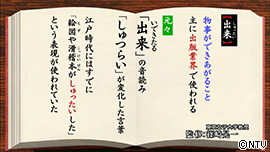 【出来】
物事ができあがること
主に出版業界で使われる
元々
いできたる
「出来」の音読み
「しゅつらい」が変化した言葉
江戸時代にはすでに
「絵図や滑稽本がしゅったいした」
という表現が使われていた
©NTV